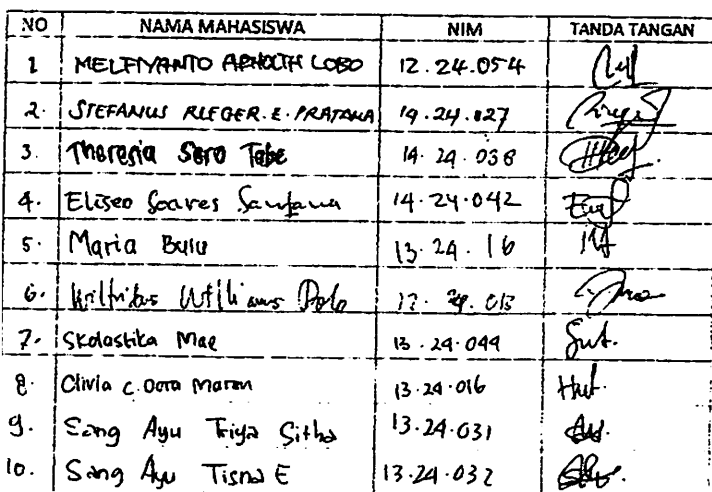 NO NAMA MAHASISWA NIM TANDA TANGAN
1 MELFIYANTO LOBO 12.24.054
2. STEFANUS RIEGER.E.PRATAMA 14.24.027
3. Theresia Sero Tabe 14.24.038
4. Eliseo Soares Santana 14.24.042
5. Maria Bulu 13.24.16
6. Williams
7. Skolastika Mae 13.24.044
8. Clivia C.Dora Maron 13.24.016
9. Sang Ayu Triya Sitha 13.24.031
10. Sang Ayu Tisna E 13.24.032